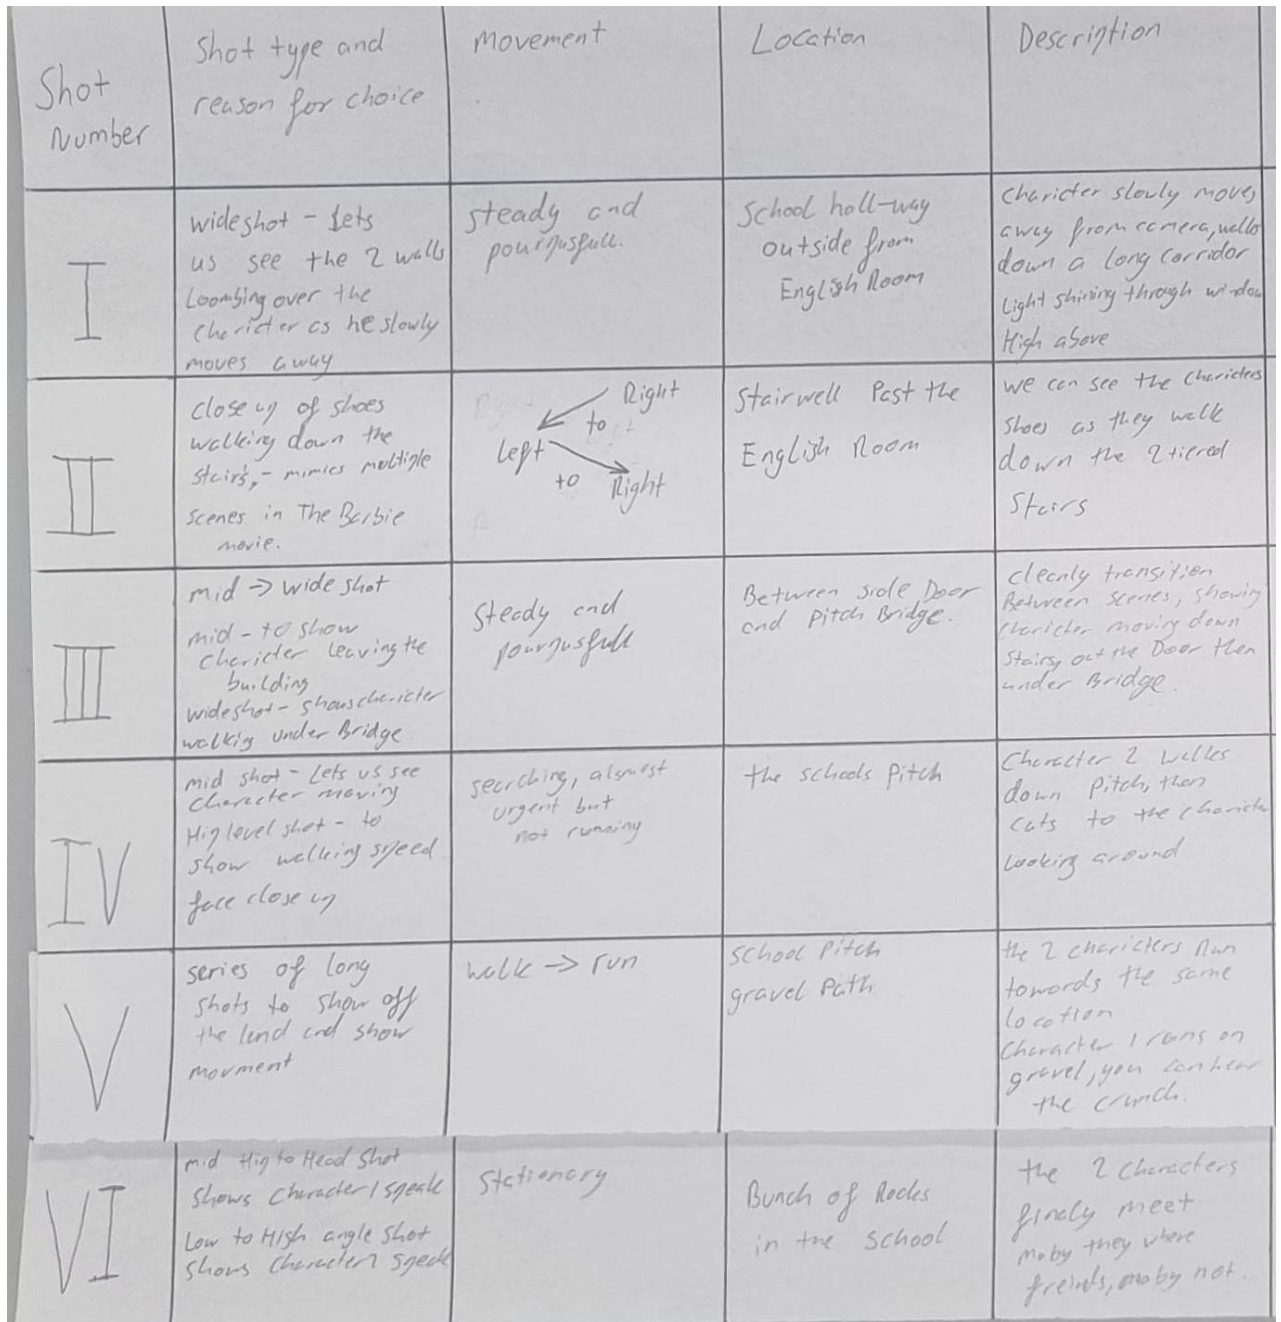 Shot
Number
Shot type and
reason for choice
Movement
Location
Description
I
wideshot - Lets
us see the 2 walls
Loombing over the
charicter as he slowly
moves away
steady and
pournusfull.
School hall-way
outside from
English Room
charicter slowly moves
away from camera, walks
down a long corridor
Light shining through window
High above
II
close up of shoes
walking down the
stairs, - mimics multiple
scenes in The Barbie
movie.
Right
to
Left
to
Right
Stairwell Past the
English Room
we can see the Charicters
shoes as they walk
down the 2 tiered
Stairs
III
mid → wide shot
mid - to show
charicter leaving the
building
wideshot - shows charicter
walking under Bridge
Steady and
pournusfull
Between side Door
and Pitch Bridge.
cleanly transition
Between scenes, showing
Charicter moving down
Stairs, out the Door then
under Bridge.
IV
mid shot - Lets us see
Character moving
Hip level shot - to
show walking speed
face close up
searching, alsmost
urgent but
not running
the schools Pitch
Character 2 walks
down Pitch, then
cuts to the charicter
Looking around
V
series of long
shots to show off
the land and show
movment
walk → run
school Pitch
gravel Path
the 2 charicters Run
towards the same
location.
Character 1 runs on
gravel, you can hear
the crunch.
VI
mid Hip to Head Shot
Shows Character 1 speak
Low to High angle shot
shows Character 2 speak
Stationary
Bunch of Rocks
in the school
the 2 characters
finaly meet
maby they where
freinds, maby not.